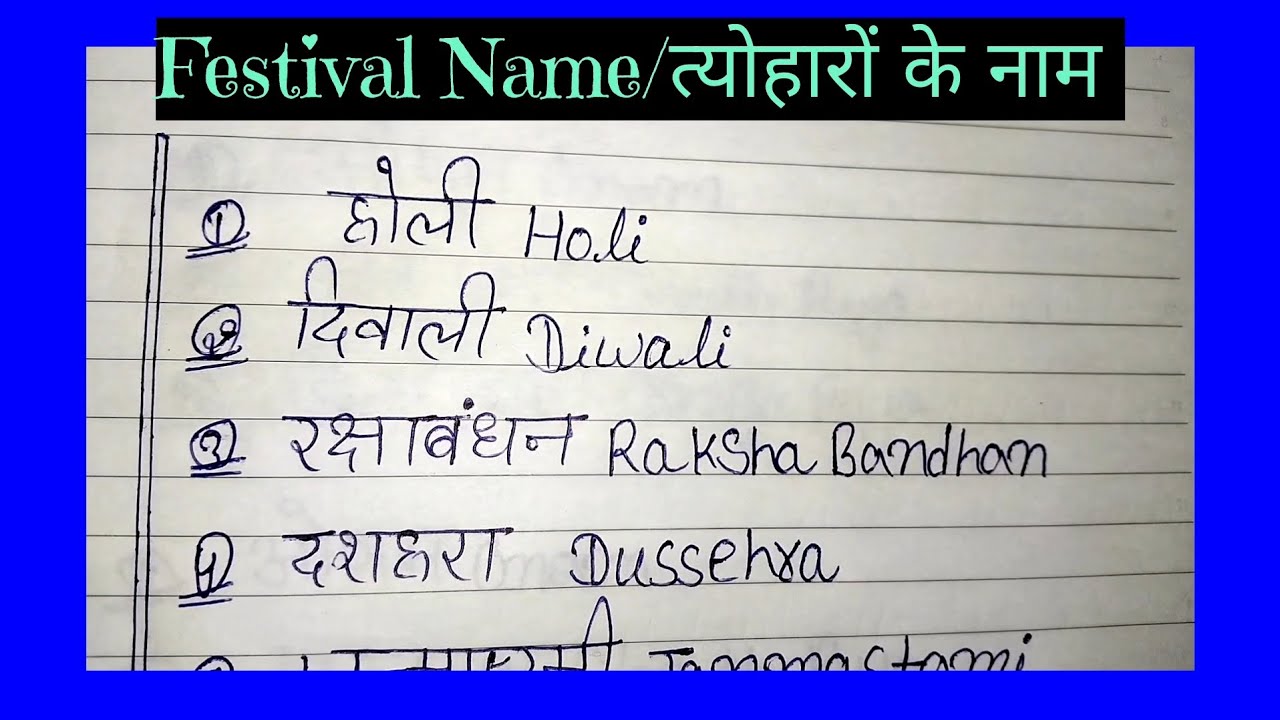 Festival Name/त्योहारों के नाम
1 होली Holi
2 दिवाली Diwali
3 रक्षाबंधन Raksha Bandhan
4 दशहरा Dussehra
Janmastami